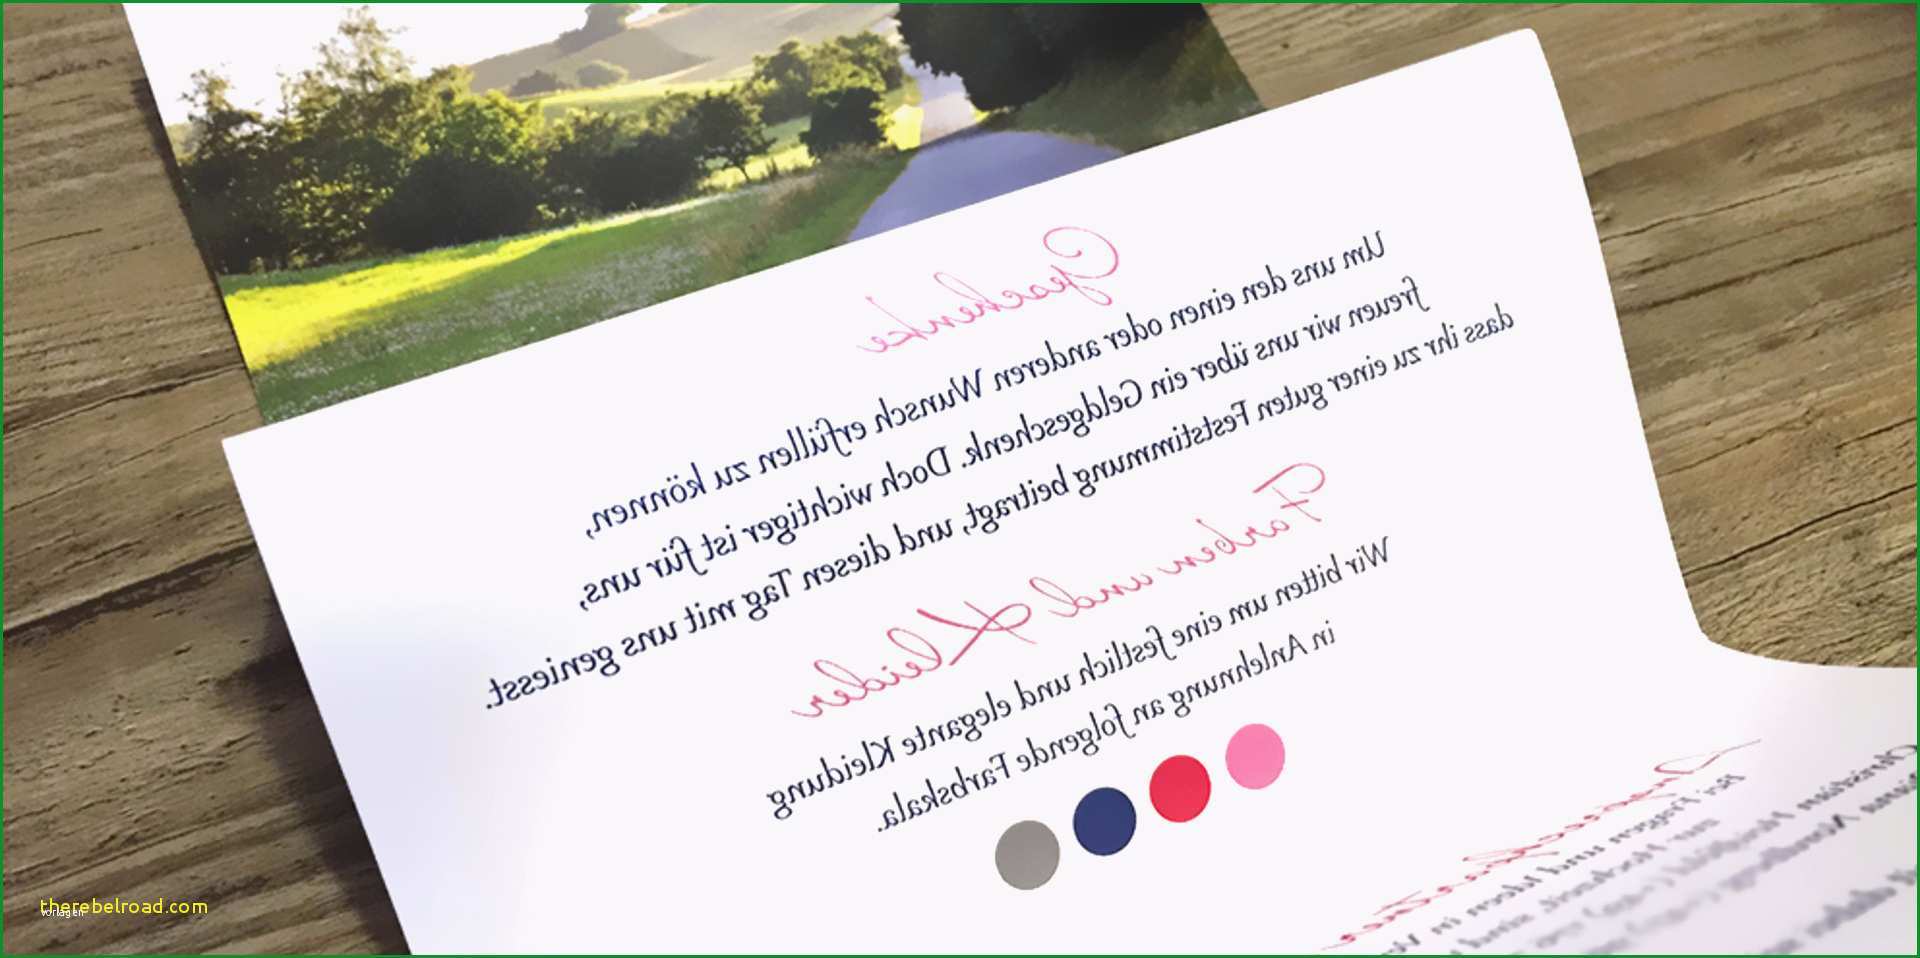 Geschenke
Um uns den einen oder anderen Wunsch erfüllen zu können,
freuen wir uns über ein Geldgeschenk. Doch wichtiger ist für uns,
dass ihr zu einer guten Feststimmung beitragt, und diesen Tag mit uns geniesst.
Farben und Kleider
Wir bitten um eine festlich und elegante Kleidung
in Anlehnung an folgende Farbskala.
Bei Fragen und Ideen in
Christian
therebelroad.com
vorlagen